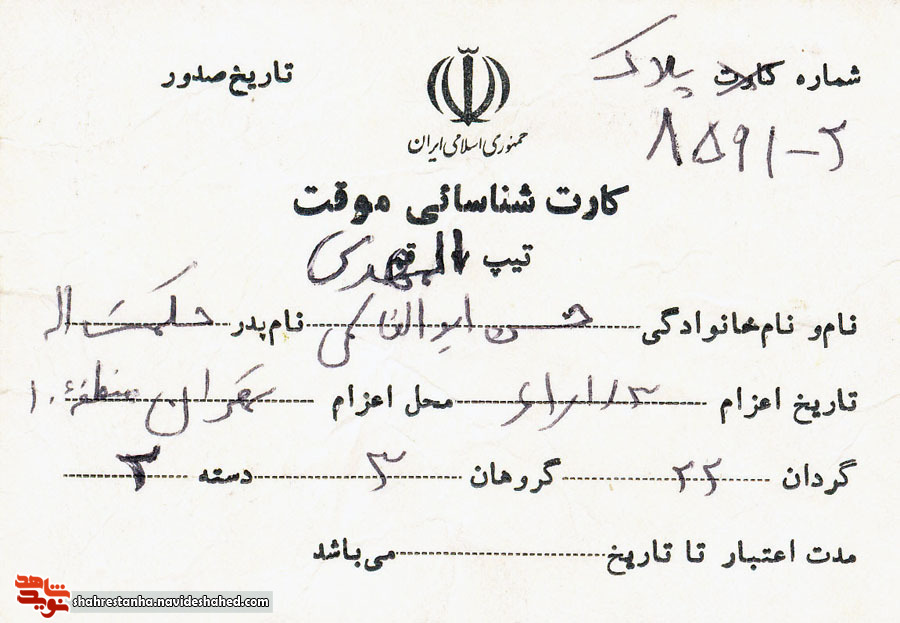 شماره کارت پلاک
تاریخ صدور
۸۵۹۱-۲
جمهوری اسلامی ایران
کارت شناسائی موقت
تیپ المهدی
نام و نام خانوادگی حسن ابوالقاسمی نام پدر حکمت اله
تاریخ اعزام محل اعزام تهران منطقه ۱۰
گردان ۲۲ گروهان ۳ دسته ۲
مدت اعتبار تا تاریخ می باشد
شاهد
نوید
shahrestanha.navideshahed.com